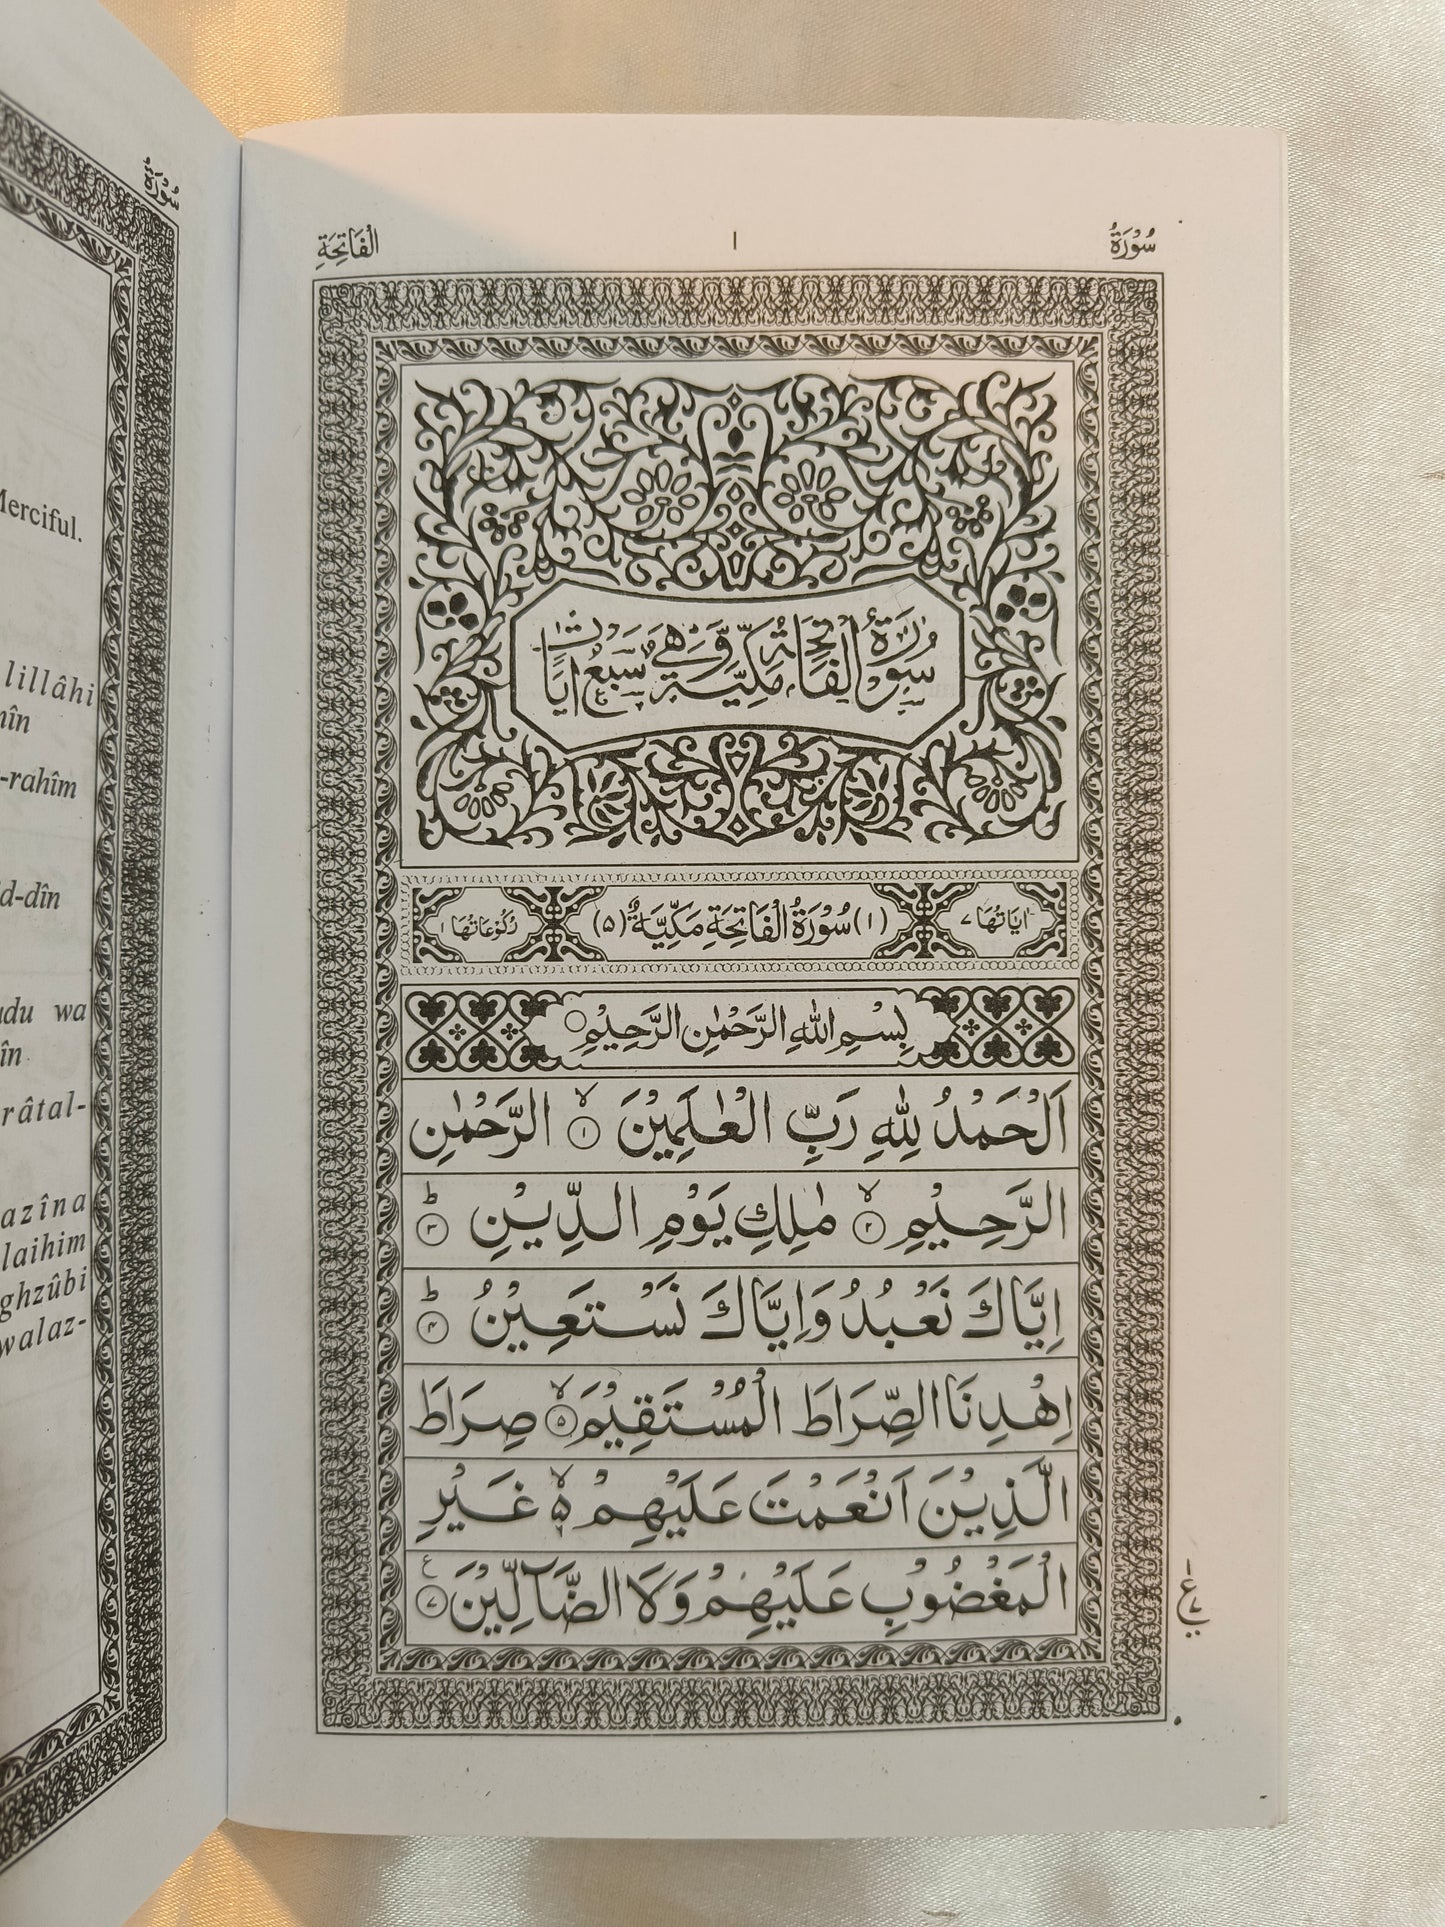 سُوْرَةُ
Merciful.
lillâhi
-rahîm
wa
walaz-
سُوْرَةُ ١ الْفَاتِحَةِ
سُوْرَةُ الْفَاتِحَةِ مَكِّيَّةٌ وَّهِيَ سَبْعُ اٰيَاتٍ
اٰيَاتُهَا ٧ (١) سُوْرَةُ الْفَاتِحَةِ مَكِّيَّةٌ (٥) رُكُوْعَاتُهَا ١
بِسْمِ اللّٰهِ الرَّحْمٰنِ الرَّحِيْمِ
اَلْحَمْدُ لِلّٰهِ رَبِّ الْعٰلَمِيْنَ ۙ ١ الرَّحْمٰنِ
الرَّحِيْمِ ۙ ٢ مٰلِكِ يَوْمِ الدِّيْنِ ؕ ٣
اِيَّاكَ نَعْبُدُ وَاِيَّاكَ نَسْتَعِيْنُ ؕ ۴
اِهْدِنَا الصِّرَاطَ الْمُسْتَقِيْمَ ۙ ۵ صِرَاطَ
الَّذِيْنَ اَنْعَمْتَ عَلَيْهِمْ ۙ۬ غَيْرِ
الْمَغْضُوْبِ عَلَيْهِمْ وَلَا الضَّآلِّيْنَ ٧